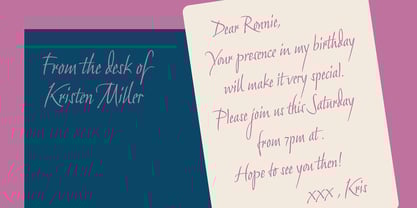 From the desk of
Kristen Miller
Dear Ronnie,
Your presence in my birthday
will make it very special.
Please join us this Saturday
from 7pm at .
Hope to see you then!
xxx , Kris